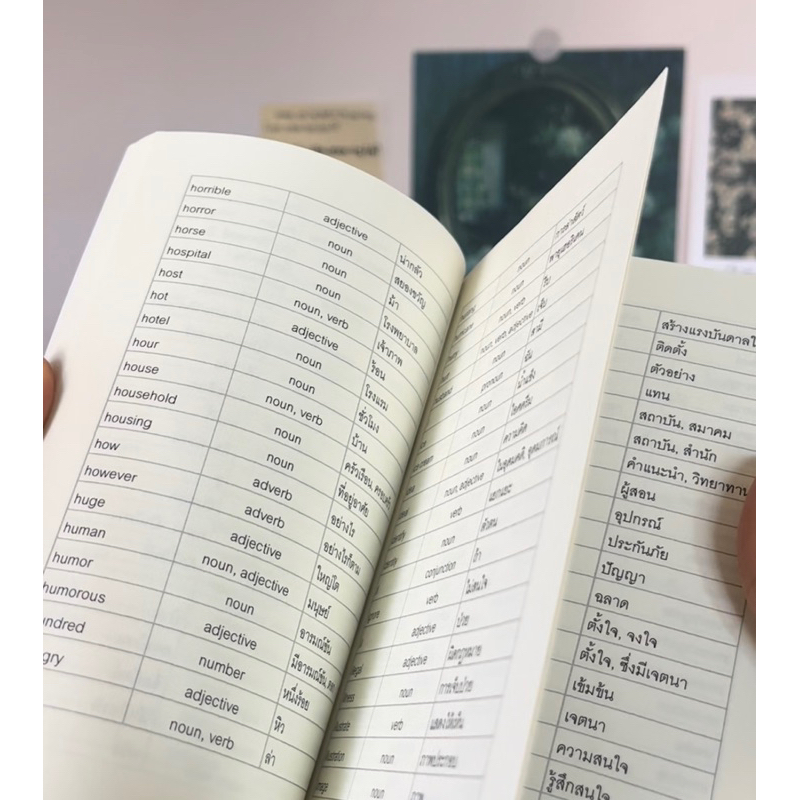 horrible adjective น่ากลัว
horror noun สยองขวัญ
horse noun ม้า
hospital noun โรงพยาบาล
host noun, verb เจ้าภาพ
hot adjective ร้อน
hotel noun โรงแรม
hour noun ชั่วโมง
house noun, verb บ้าน
household noun ครัวเรือน,
housing noun ที่อยู่อาศัย
how adverb อย่างไร
however adverb อย่างไรก็ตาม
huge adjective ใหญ่โต
human noun, adjective มนุษย์
humor noun อารมณ์ขัน
humorous adjective มีอารมณ์ขัน,
ndred number หนึ่งร้อย
gry adjective หิว
noun, verb ล่า
noun
noun
noun, verb รีบ
noun, verb, adjective เจ็บ
noun สามี
pronoun ฉัน
noun น้ำแข็ง
noun ไอศครีม
noun ความคิด
noun, adjective
verb แยกแยะ
noun ตัวตน
conjunction ถ้า
verb ไม่สนใจ
adjective ป่วย
adjective ผิดกฎหมาย
noun การเจ็บป่วย
verb แสดงให้เห็น
noun ภาพประกอบ
noun ภาพ
สร้างแรงบันดาลใ
ติดตั้ง
ตัวอย่าง
แทน
สถาบัน, สมาคม
สถาบัน, สำนัก
คำแนะนำ, วิทยาทาน
ผู้สอน
อุปกรณ์
ประกันภัย
ปัญญา
ฉลาด
ตั้งใจ, จงใจ
ตั้งใจ, ซึ่งมีเจตนา
เข้มข้น
เจตนา
ความสนใจ
รู้สึกสนใจ